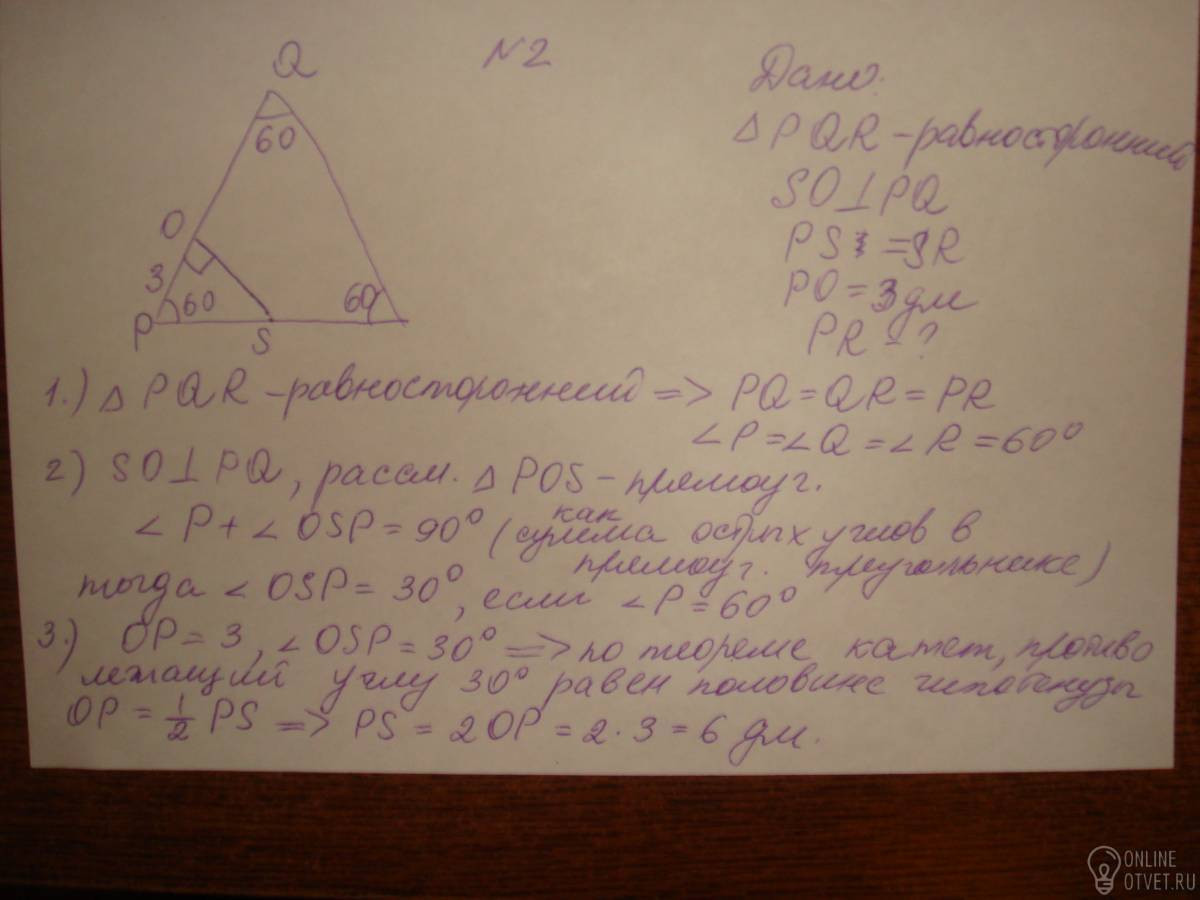 N2
Q
60
O
3
60
60
P
S
Дано:
△PQR-равносторонний
SO⊥PQ
PS =SR
PO=3дм
PR-?
1.) △PQR-равносторонний => PQ=QR=PR
∠P=∠Q=∠R=60°
2) SO⊥PQ, рассм. △POS-прямоуг.
∠P+∠OSP=90° (как сумма острых углов в
прямоуг. треугольнике)
тогда ∠OSP=30°, если ∠P=60°
3.) OP=3, ∠OSP=30° => по теореме катет, противо
лежащий углу 30° равен половине гипотенузы
OP=1/2 PS => PS=2OP=2·3=6 дм.
ONLINE
OTVET.RU